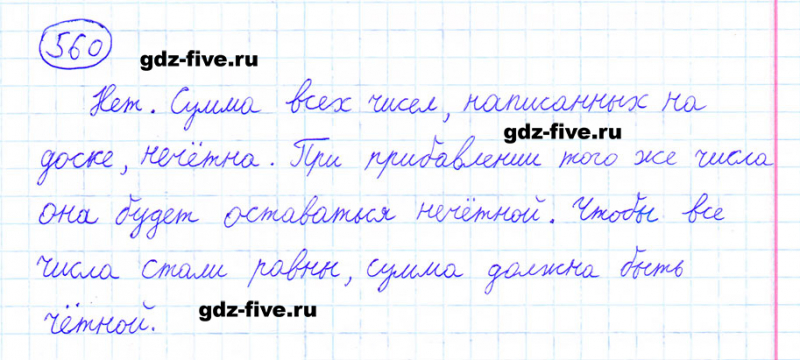 560
gdz-five.ru
Нет. Сумма всех чисел, написанных на
gdz-five.ru
доске, нечётна. При прибавлении того же числа
она будет оставаться нечётной. Чтобы все
числа стали равны, сумма должна быть
gdz-five.ru
чётной.